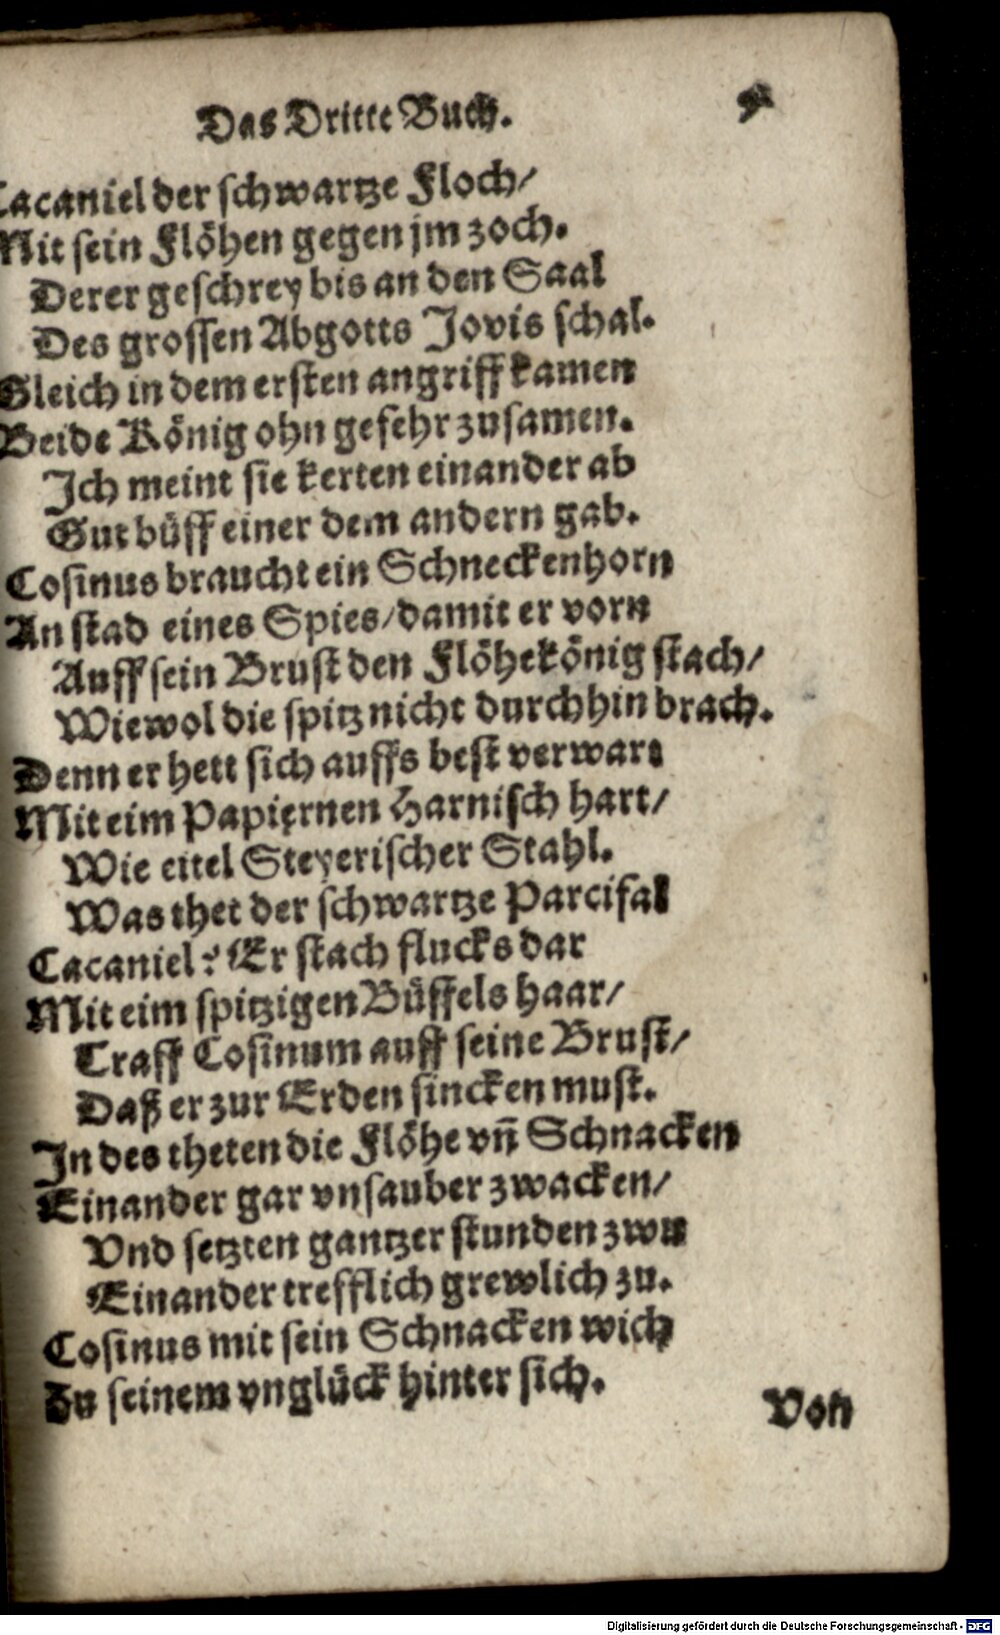 Das Dritte Buch.
Cacaniel der schwartze Floch/
Mit sein Flöhen gegen jm zoch.
Derer geschrey bis an den Saal
Des grossen Abgotts Jovis schal.
Gleich in dem ersten angriff kamen
Beide König ohn gefehr zusamen.
Ich meint sie kerten einander ab
Gut büff einer dem andern gab.
Cosinus braucht ein Schneckenhorn
An stad eines Spies/damit er vorn
Auff sein Brust den Flöhekönig stach/
Wiewol die spitz nicht durchhin brach.
Denn er hett sich auffs best verwart
Mit eim Papiernen Harnisch hart/
Wie eitel Steyerischer Stahl.
Was thet der schwartze Parcifal
Cacaniel? Er stach flucks dar
Mit eim spitzigen Büffels haar/
Traff Cosinum auff seine Brust/
Daß er zur Erden sincken must.
In des theten die Flöhe vñ Schnacken
Einander gar vnsauber zwacken/
Vnd setzten gantzer stunden zwu
Einander trefflich grewlich zu.
Cosinus mit sein Schnacken wich
Zu seinem vnglück hinter sich.
Von
Digitalisierung gefördert durch die Deutsche Forschungsgemeinschaft - DFG